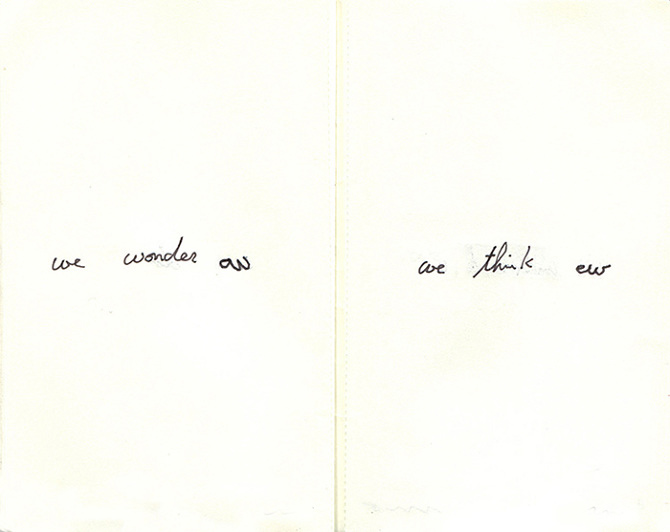 we wonder
we think ew